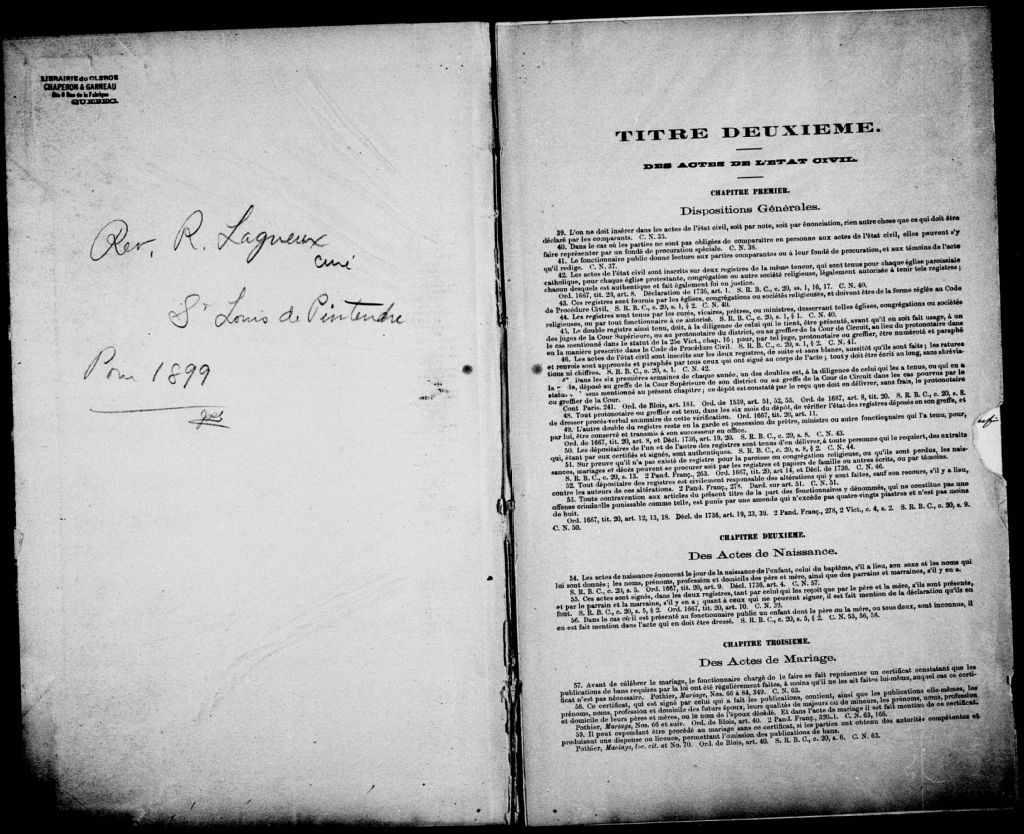 LIBRAIRIE du CLERGE
CHAPERON & GARNEAU
Rue de la Fabrique
QUEBEC.
Rev. R. Lagueux
curé
St Louis de Pintendre
Pour 1899
TITRE DEUXIEME.
DES ACTES DE L'ETAT CIVIL.
CHAPITRE PREMIER.
Dispositions Générales.
39. L'on ne doit insérer dans les actes de l'état civil, soit par note, soit par énonciation, rien autre chose que ce qui doit être
déclaré par les comparants. C. N. 35.
40. Dans le cas où les parties ne sont pas obligées de comparaître en personne aux actes de l'état civil, elles peuvent s'y
faire représenter par un fondé de procuration spéciale. C. N. 36.
41. Le fonctionnaire public donne lecture aux parties comparantes ou à leur fondé de procuration, et aux témoins de l'acte
qu'il rédige. C. N. 37.
42. Les actes de l'état civil sont inscrits sur deux registres de la même teneur, qui sont tenus pour chaque église paroissiale
catholique, pour chaque église protestante, congrégation ou autre société religieuse, légalement autorisée à tenir tels registres ;
chacun desquels est authentique et fait également foi en justice.
Ord. 1667, tit. 20, art. 8. Déclaration de 1736, art. 1. S. R. B. C., c. 20, ss. 1, 16, 17. C. N. 40.
43. Ces registres sont fournis par les églises, congrégations ou sociétés religieuses, et doivent être de la forme réglée au Code
de Procédure Civil. S. R. B. C., c. 20, s. 1, § 2. C. N. 40.
44. Les registres sont tenus par les curés, vicaires, prêtres, ou ministres, desservant telles églises, congrégations ou sociétés
religieuses, ou par tout fonctionnaire à ce autorisé. S. R. B. C., c. 20, s. 1, § 1. C. N. 40.
45. Le double registre ainsi tenu, doit, à la diligence de celui qui le tient, être présenté, avant qu'il en soit fait usage, à un
des juges de la Cour Supérieure, ou au protonotaire du district, ou au greffier de la Cour de Circuit, au lieu du protonotaire dans
le cas mentionné dans le statut de la 25e Vict., chap. 16 ; pour, par tel juge, protonotaire ou greffier, être numéroté et paraphé
en la manière prescrite dans le Code de Procédure Civil. S. R. B. C., c. 20, s. 1, § 2. C. N. 41.
46. Les actes de l'état civil sont inscrits sur les deux registres, de suite et sans blancs, aussitôt qu'ils sont faits ; les ratures
et renvois sont approuvés et paraphés par tous ceux qui ont signé au corps de l'acte ; tout y doit être écrit au long, sans abrévia-
tions ni chiffres. S. R. B. C., c. 20, s. 1. C. N. 42.
Dans les six premières semaines de chaque année, un des doubles est, à la diligence de celui qui les a tenus, ou qui en a
la déposé au greffe de la Cour Supérieure de son district ou au greffe de la Cour de Circuit dans les cas pourvus par le
mentionné au présent chapitre ; ce dépôt est constaté par le reçu que doit en délivrer, sans frais, le protonotaire
ou greffier de la Cour.
Cout Paris. 241. Ord. de Blois, art. 181. Ord. de 1539, art. 51, 52, 53. Ord. de 1667, art. 8, tit. 20. S. R. B. C., c. 20, s. 8.
48. Tout protonotaire ou greffier est tenu, dans les six mois du dépôt, de vérifier l'état des registres déposés en son greffe, et
de dresser procès-verbal sommaire de cette vérification. Ord. 1667, tit. 20, art. 11.
49. L'autre double du registre reste en la garde et possession du prêtre, ministre ou autre fonctionnaire qui l'a tenu, pour,
par lui, être conservé et transmis à son successeur en office.
Ord. de 1667, tit. 20, art. 8, et Décl. 1736, art. 19, 20. S. R. B. C., c. 20, s. 8. C. N. 43.
50. Les dépositaires de l'un et de l'autre des registres sont tenus d'en délivrer, à toute personne qui le requiert, des extraits
qui, étant par eux certifiés et signés, sont authentiques. S. R. B. C., c. 20, s. 8, § 2. C. N. 44.
51. Sur preuve qu'il n'a pas existé de registre pour la paroisse ou congrégation religieuse, ou qu'ils sont perdus, les nais-
sances, mariages et décès peuvent se procurer soit par les registres et papiers de famille ou autres écrits, ou par témoins.
S. R. B. C., c. 20, s. 13. 2 Pand. Franç., 263. Ord. 1667, tit. 20, art 14, et Décl. de 1736. C. N. 46.
52. Tout dépositaire des registres est civilement responsable des altérations qui y sont faites, sauf son recours, s'il y a lieu,
contre les auteurs de ces altérations. 2 Pand. Franç., 278. Dard. sur art. 51. C. N. 51.
53. Toute contravention aux articles du présent titre de la part des fonctionnaires y dénommés, qui ne constitue pas une
offense criminelle punissable comme telle, est punie par une amende qui n'excède pas quatre-vingts piastres et n'est pas moins
de huit.
Ord. 1667, tit. 20, art. 12, 13, 18. Décl. de 1736, art. 19, 33, 39. 2 Pand. Franç., 278, 2 Vict., c. 4, s. 2. S. R. B. C., c. 20, s. 9.
C. N. 50.
CHAPITRE DEUXIEME.
Des Actes de Naissance.
54. Les actes de naissance énoncent le jour de la naissance de l'enfant, celui du baptême, s'il a lieu, son sexe et les noms qui
lui sont donnés ; les noms, prénoms, profession et domicile des père et mère, ainsi que des parrains et marraines, s'il y en a.
S. R. B. C., c. 20, s. 5. Ord. 1667, tit. 20, art. 9. Décl. 1736, art. 4. C. N. 57.
55. Ces actes sont signés, dans les deux registres, tant par celui qui les reçoit que par le père et la mère, s'ils sont présents,
et par le parrain et la marraine, s'il y en a ; quant à ceux qui ne peuvent signer, il est fait mention de la déclaration qu'ils en
font. S. R. B. C., c. 20, s. 5, § 2. Ord. 1667, tit. 20, art. 10. C. N. 39.
56. Dans le cas où il est présenté au fonctionnaire public un enfant dont le père ou la mère, ou tous deux, sont inconnus, il
en est fait mention dans l'acte qui en doit être dressé. S. R. B. C., c. 20, s. 5, § 2. C. N. 55, 56, 58.
CHAPITRE TROISIEME.
Des Actes de Mariage.
57. Avant de célébrer le mariage, le fonctionnaire chargé de le faire se fait représenter un certificat constatant que les
publications de bans requises par la loi ont été régulièrement faites, à moins qu'il ne les ait faites lui-même, auquel cas ce certi-
ficat n'est pas nécessaire. Pothier, Mariage, Nos. 66 à 84, 349. C. N. 63.
58. Ce certificat, qui est signé par celui qui a fait les publications, contient, ainsi que les publications elle-mêmes, les
prénoms, noms, profession et domicile des futurs époux, leurs qualités de majeurs ou de mineurs, les prénoms, noms, profession
et domicile de leurs pères et mères, ou le nom de l'époux décédé. Et dans l'acte de mariage il est fait mention de ce certificat.
Pothier, Mariage, Nos. 66 et suiv. Ord. de Blois, art. 40. 2 Pand. Franç., 320-1. C. N. 63, 166.
59. Il peut cependant être procédé au mariage sans ce certificat, si les parties ont obtenu des autorités compétentes et
produisent une dispense ou licence, permettant l'omission des publications de bans.
Pothier, Mariage, loc. cit. et No. 70. Ord. de Blois, art. 40. S. R. B. C., c. 20, s. 6. C. N. 63.